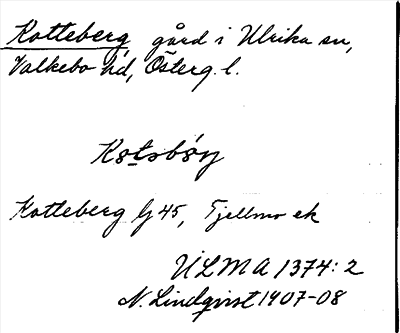 Kotteberg gård i Ulrika sn,
Valkebo hd, Österg. l.
Kotteberg lj 45, Tjellmo ek
ULMA 1374:2
N. Lindqvist 1907-08